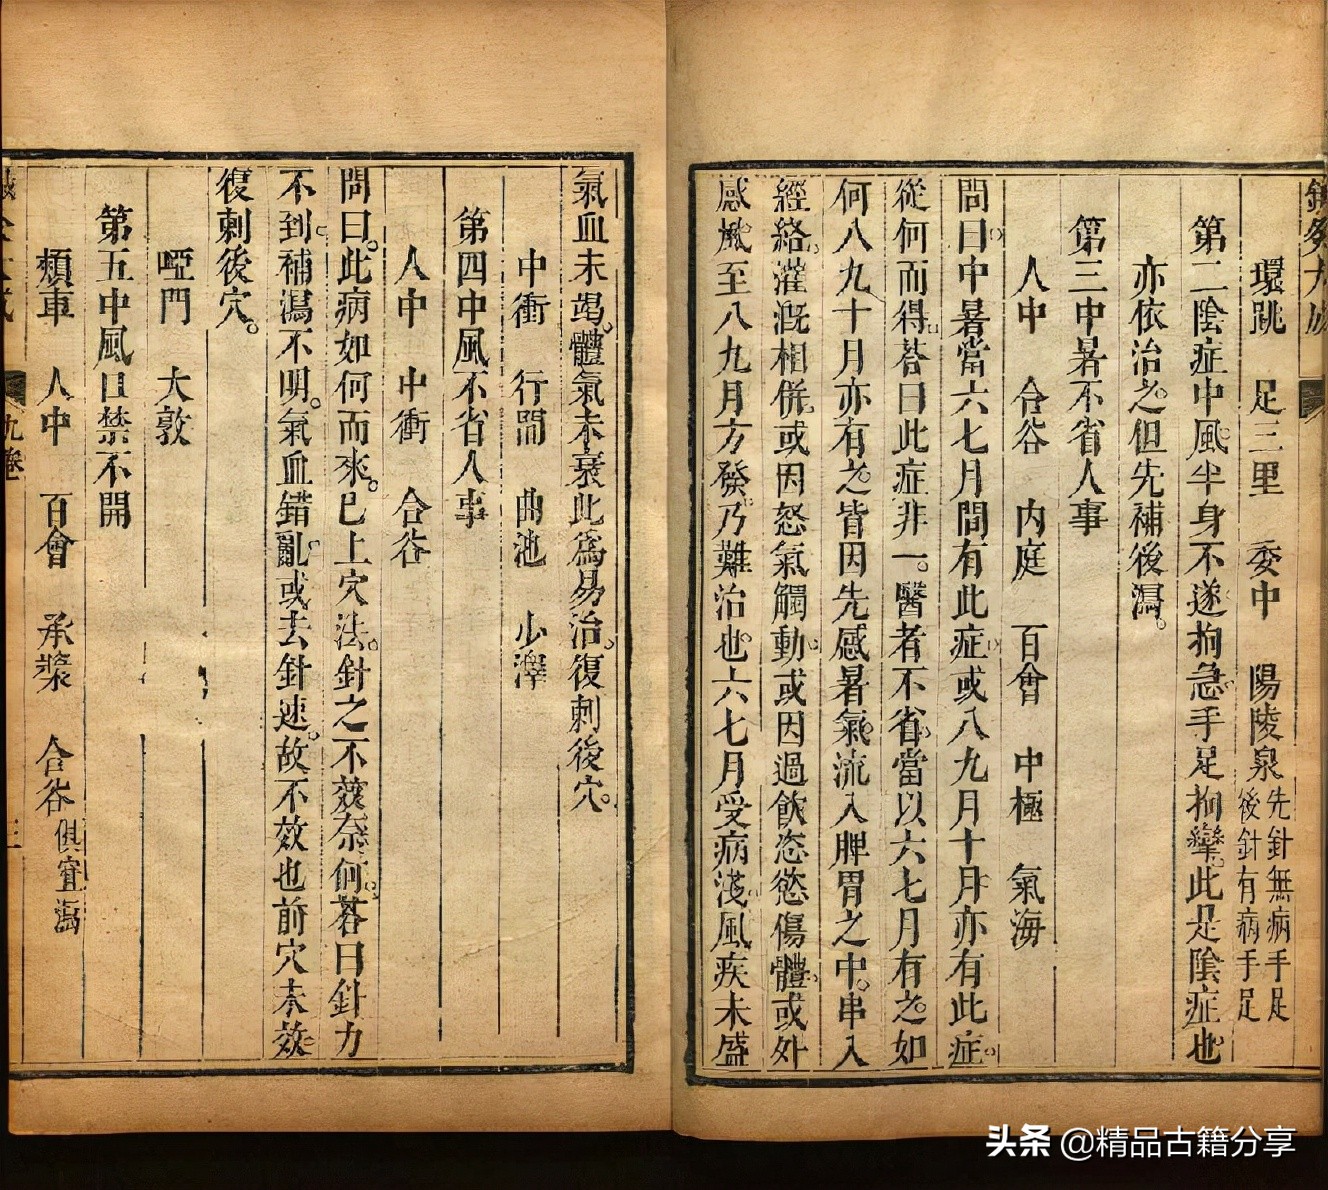 環跳　足三里　委中　陽陵泉　先針無病手足後針有病手足
第二陰症中風半身不遂拘急手足拘攣此是陰症也
亦依治之但先補後瀉
第三中暑不省人事
人中　合谷　内庭　百會　中極　氣海
問曰中暑當六七月間有此症或八九月十月亦有此症
從何而得荅曰此症非一醫者不省當以六七月有之如
何八九十月亦有之皆因先感暑氣流入脾胃之中串入
經絡灌溉相併或因怒氣觸動或因過飲恣慾傷體或外
感風至八九月方發乃難治也六七月受病淺風疾未盛
氣血未竭體氣未衰此為易治復刺後穴
中衝　行間　曲池　少澤
第四中風不省人事
人中　中衝　合谷
問曰此病如何而來已上穴法針之不效奈何荅曰針力
不到補瀉不明氣血錯亂或去針速故不效也前穴未效
復刺後穴
啞門　大敦
第五中風口禁不開
頰車　人中　百會　承漿　合谷　俱宜瀉
九卷
头条 @精品古籍分享